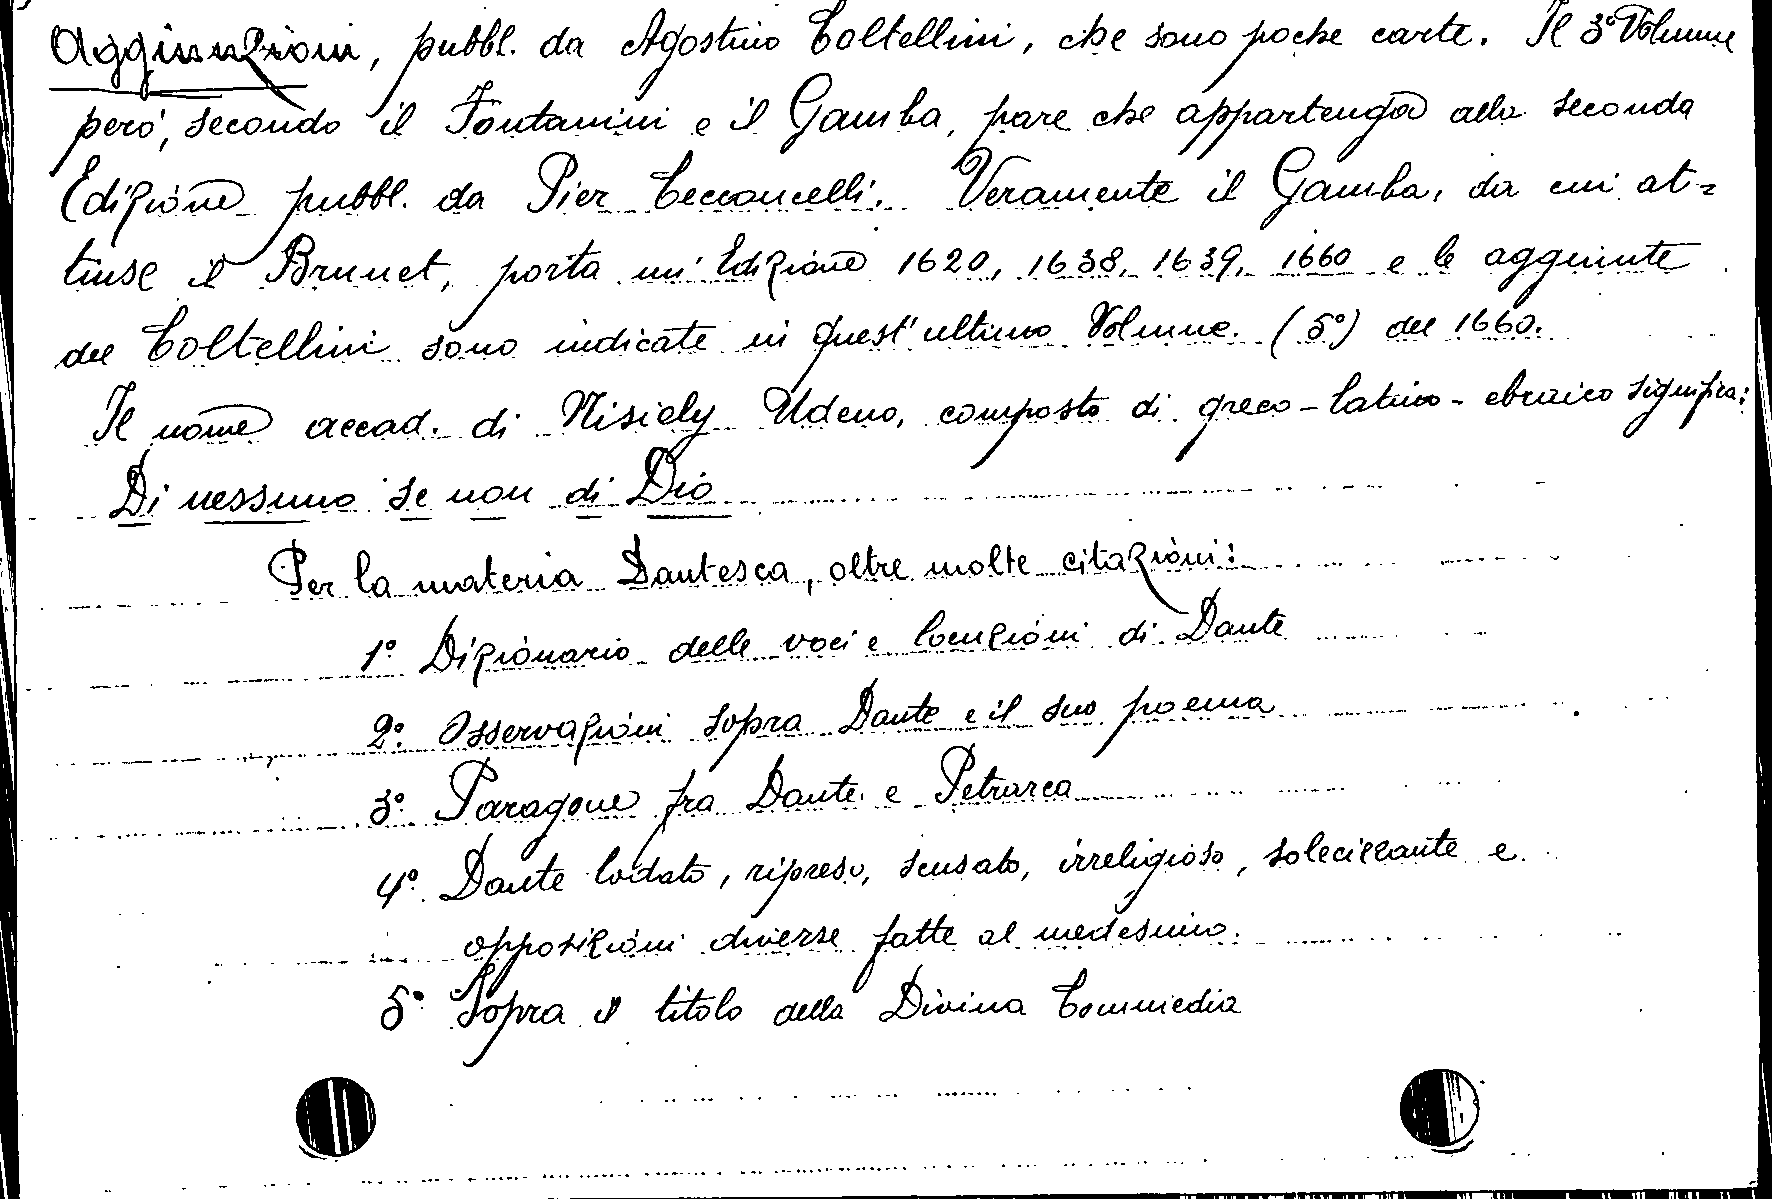 Aggiunzioni, pubbl. da Agostino Coltellini, che sono poche carte. Il 3º Volume
però, secondo il Fontanini e il Gamba, pare che appartenga alla seconda
Edizione pubbl. da Pier Cecconcelli. Veramente il Gamba, da cui at=
tinse il Brunet, porta un' Edizione 1620, 1638, 1639, 1660 e le aggiunte
del Coltellini sono indicate in quest' ultimo Volume. (5º) del 1660.
Il nome accad. di Nisiely Udeno, composto di greco-latino-ebraico significa:
Di nessuno se non di Dio
Per la materia Dantesca, oltre molte citazioni:
1º Dizionario delle voci e locuzioni di Dante
2º. Osservazioni sopra Dante e il suo poema
3º. Paragone fra Dante e Petrarca
4º. Dante lodato, ripreso, scusato, irreligioso, solecizzante e
opposizioni diverse fatte al medesimo.
5º Sopra il titolo della Divina Commedia